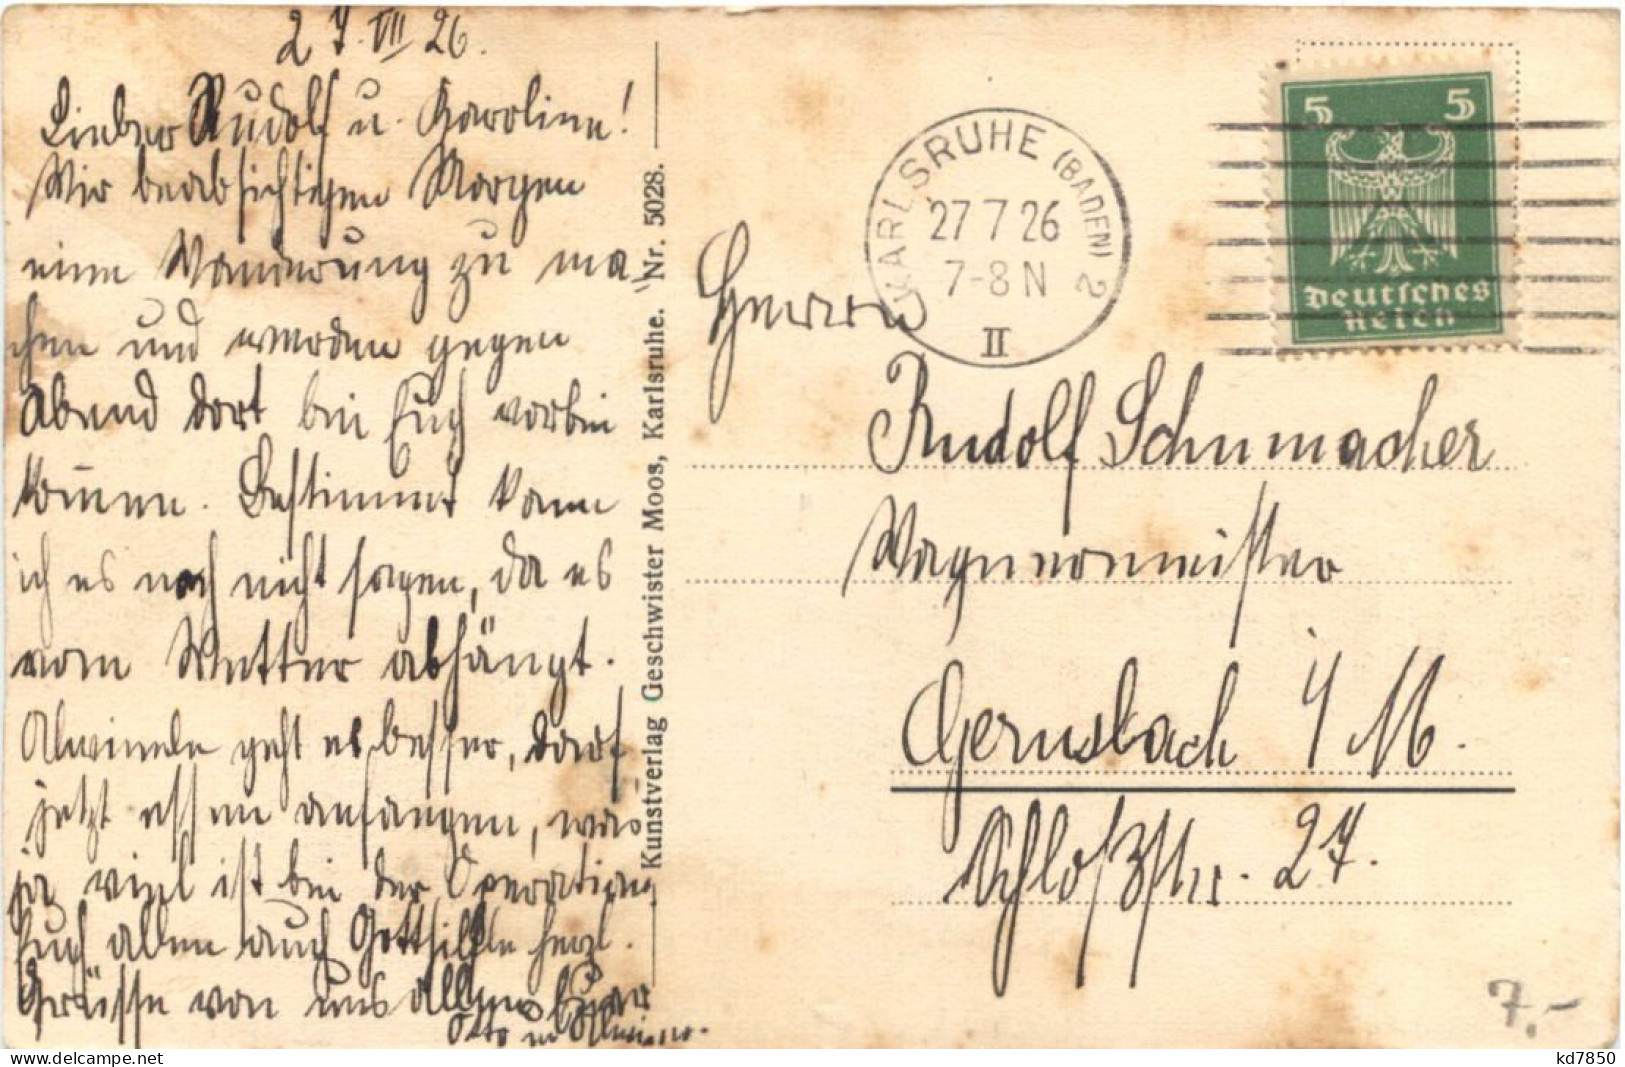 27. VII 26.
Lieber Rudolf u. Karoline!
Wir beabsichtigen Morgen
eine Wanderung zu ma-
chen und werden gegen
Abend dort bei Euch vorbei
kom̄en. Bestimmt kann
ich es noch nicht sagen, da es
vom Wetter abhängt.
Alwinele geht es besser, darf
jetzt essen anfangen, was
ja viel ist bei der Operation
Euch allen auch Gotthilfle herzl.
Grüsse von uns allen Euer
Otto und Alwine.
Kunstverlag Geschwister Moos, Karlsruhe. Nr. 5028.
KARLSRUHE (BADEN) 2
27 7 26
7-8 N
II
5 5
Deutsches
Reich
Herrn
Rudolf Schumacher
Wagnermeister
Gernsbach i/M.
Schloßstr. 27.
7,-
kd7850
delcampe.net